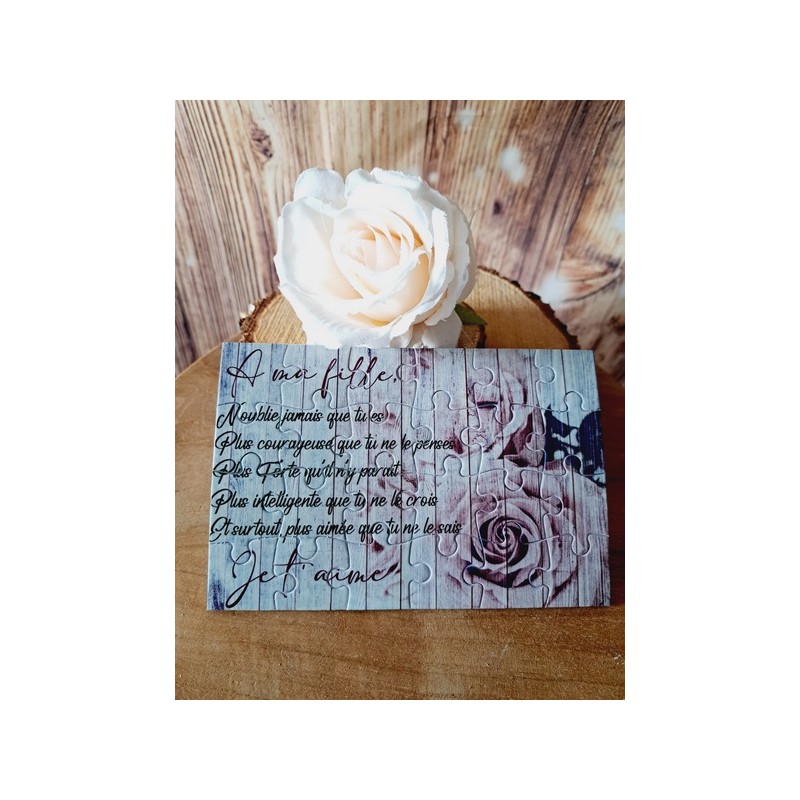 A ma fille,
N'oublie jamais que tu es
Plus courageuse que tu ne le penses
Plus Forte qu'il n'y parait
Plus intelligente que tu ne le crois
Et surtout, plus aimée que tu ne le sais
Je t'aime